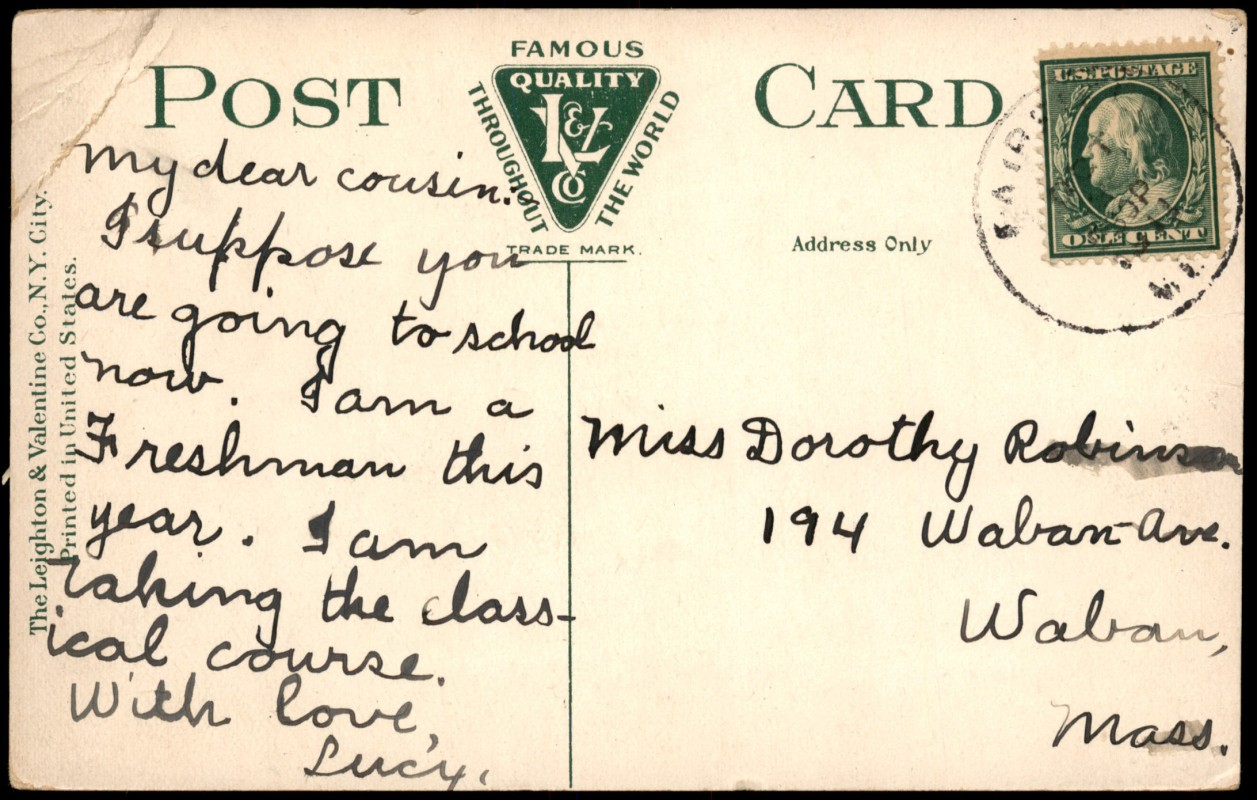 POST CARD
FAMOUS
QUALITY
THROUGHOUT
THE WORLD
L&V
CO
TRADE MARK.
Address Only
U.S. POSTAGE
ONE CENT
The Leighton & Valentine Co., N.Y. City.
Printed in United States.
My dear cousin:
I suppose you
are going to school
now. I am a
Freshman this
year. I am
taking the class-
ical course.
With love,
Lucy.
Miss Dorothy Robinson
194 Waban Ave.
Waban,
Mass.